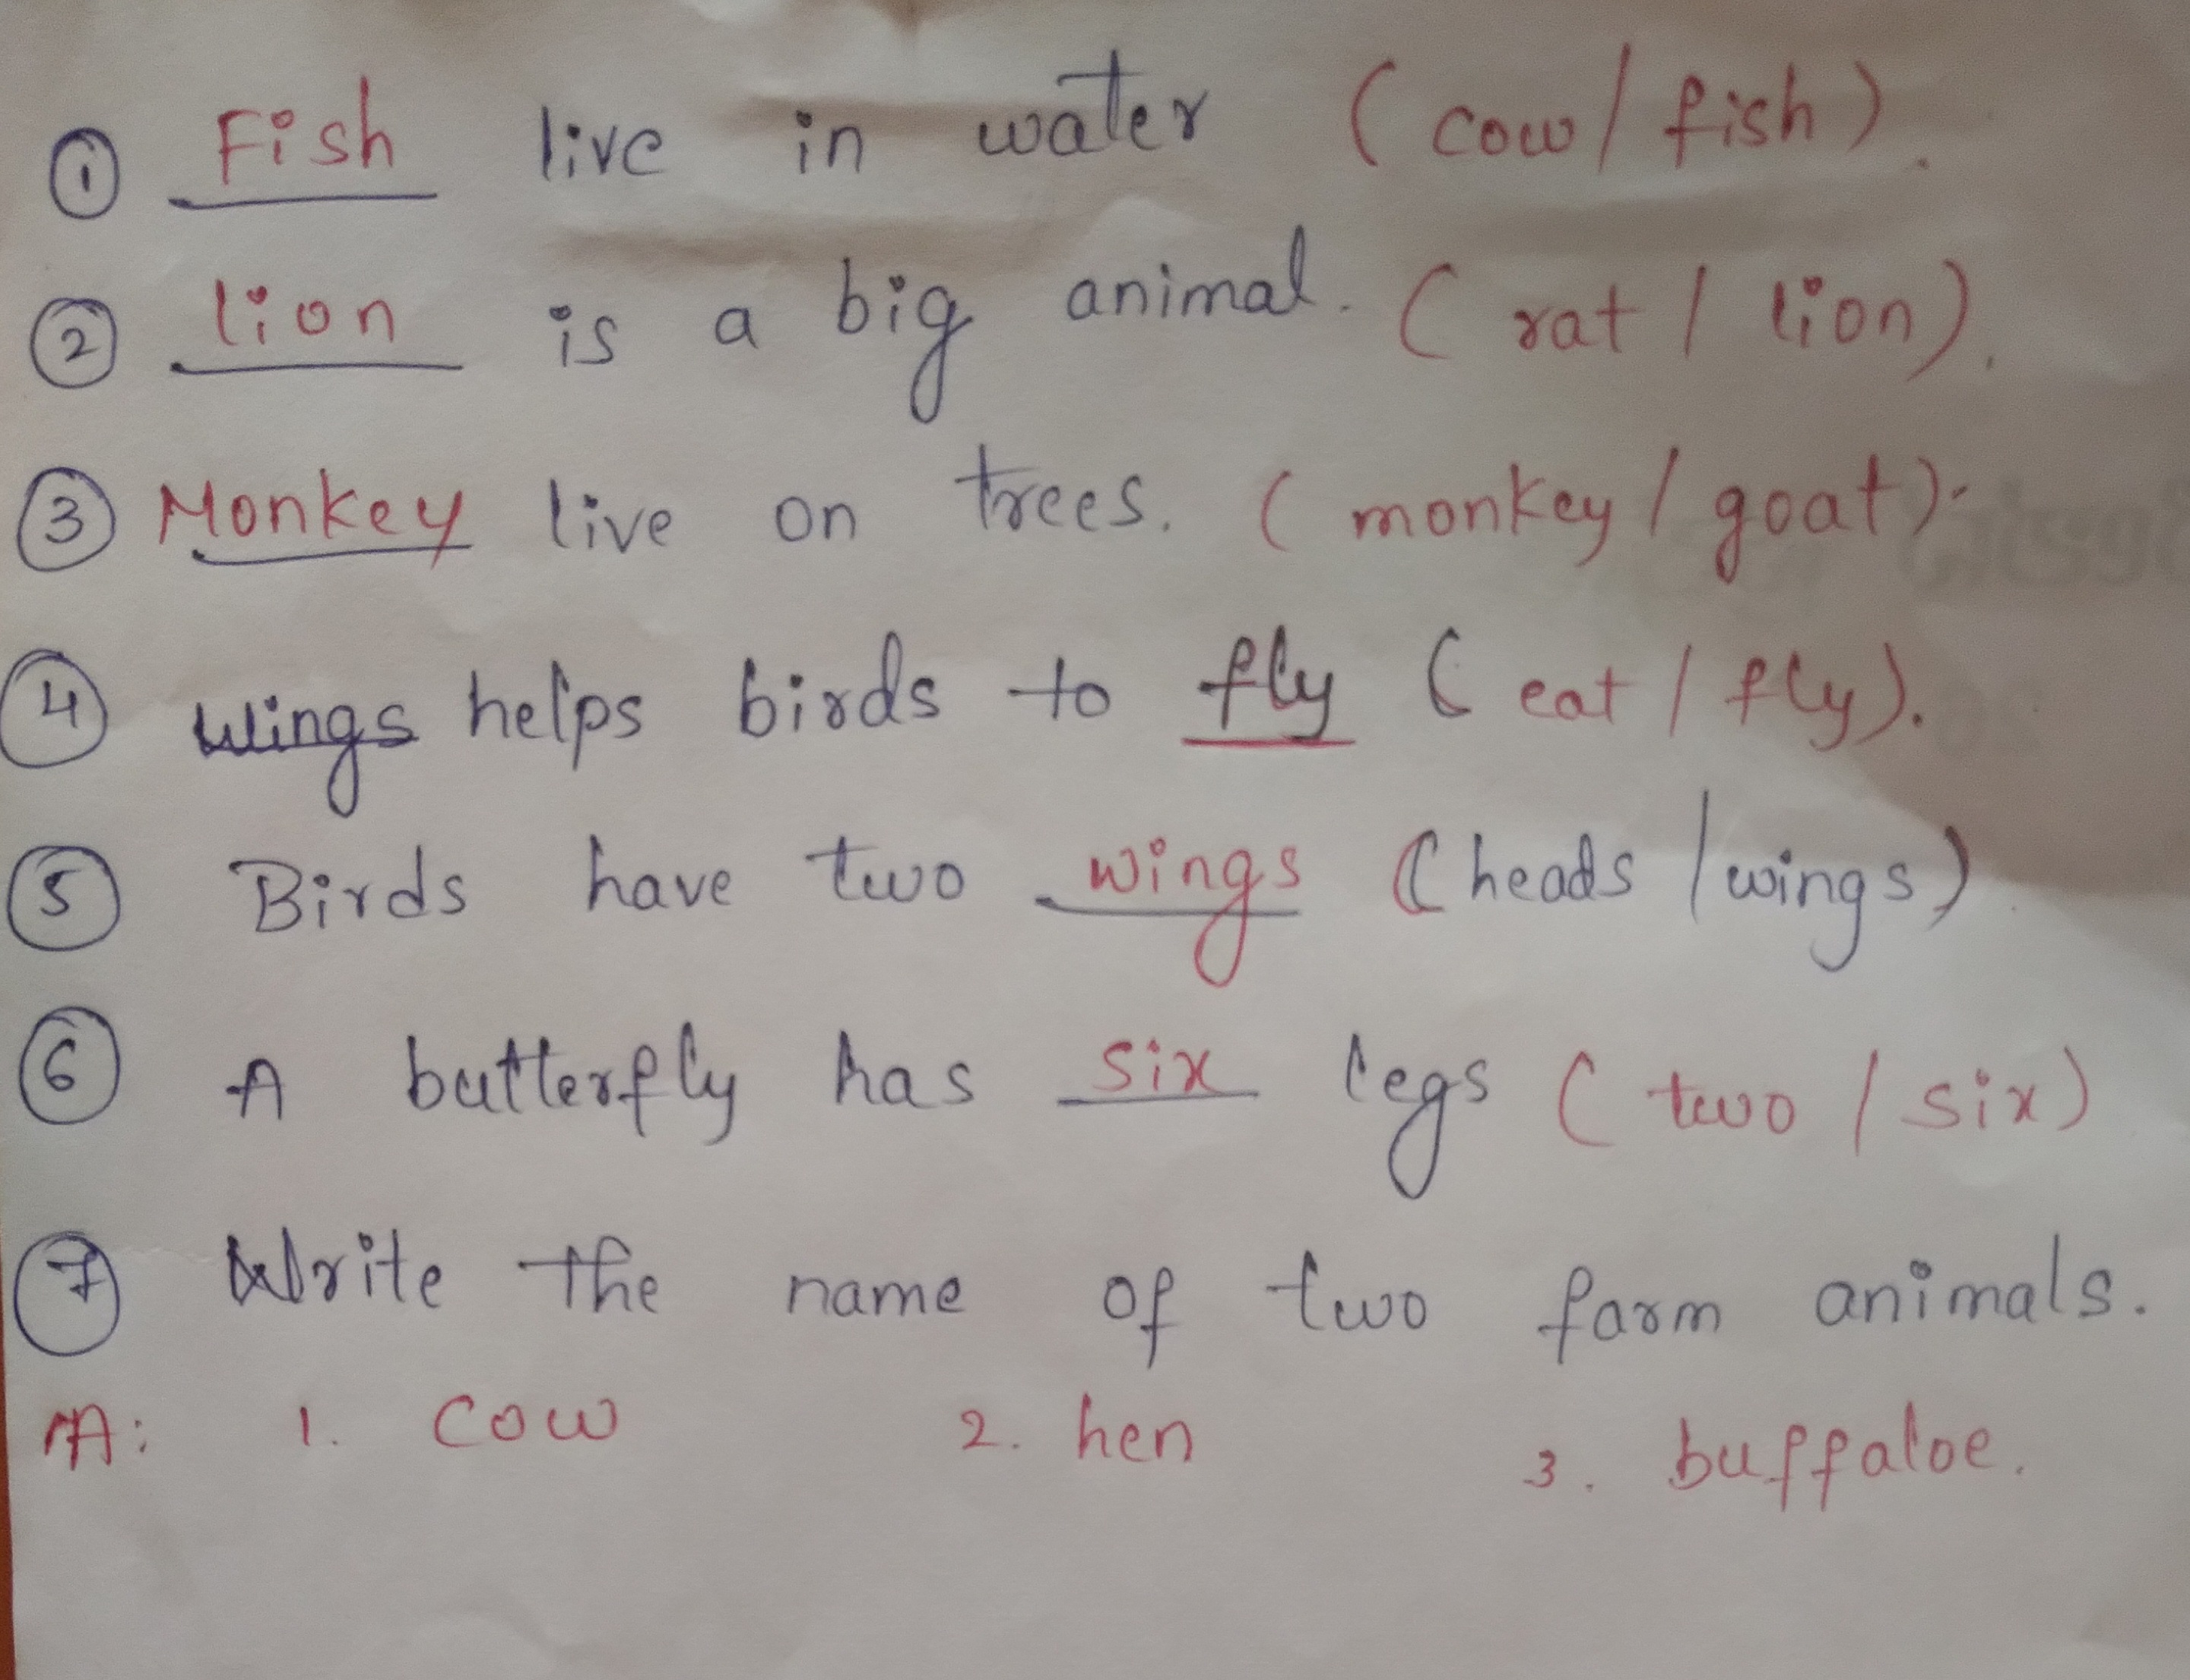 ① Fish live in water (cow/fish).
② lion is a big animal. (rat / lion).
③ Monkey live on trees. (monkey / goat).
④ wings helps birds to fly (eat / fly).
⑤ Birds have two wings (heads / wings)
⑥ A butterfly has six legs (two / six)
⑦ Write the name of two farm animals.
A: 1. cow 2. hen 3. buffaloe.